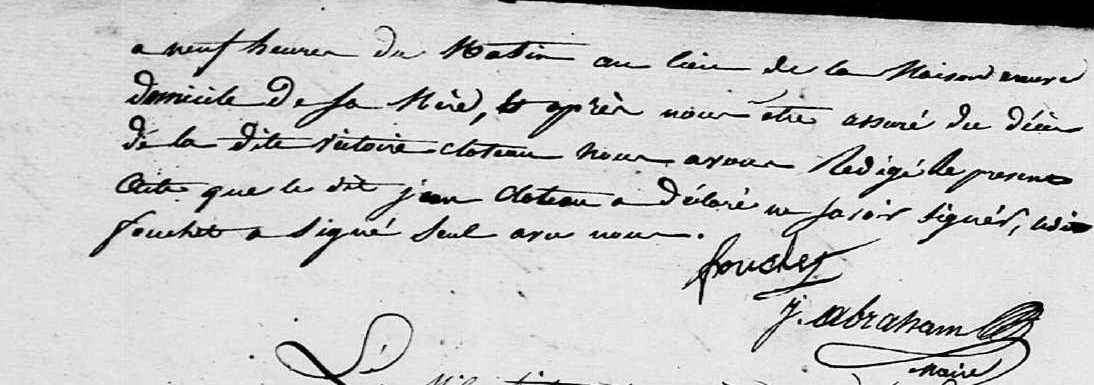 a neuf heures du Matin au lieu de la Maison
domicile de sa Mère, et après nous être assuré du décès
de la dite victoire cloteau nous avons Redigé le present
acte que le dit jean cloteau a déclaré ne savoir signer, ledit
fouchet a signé seul avec nous.
fouchet
J. Abraham
Maire